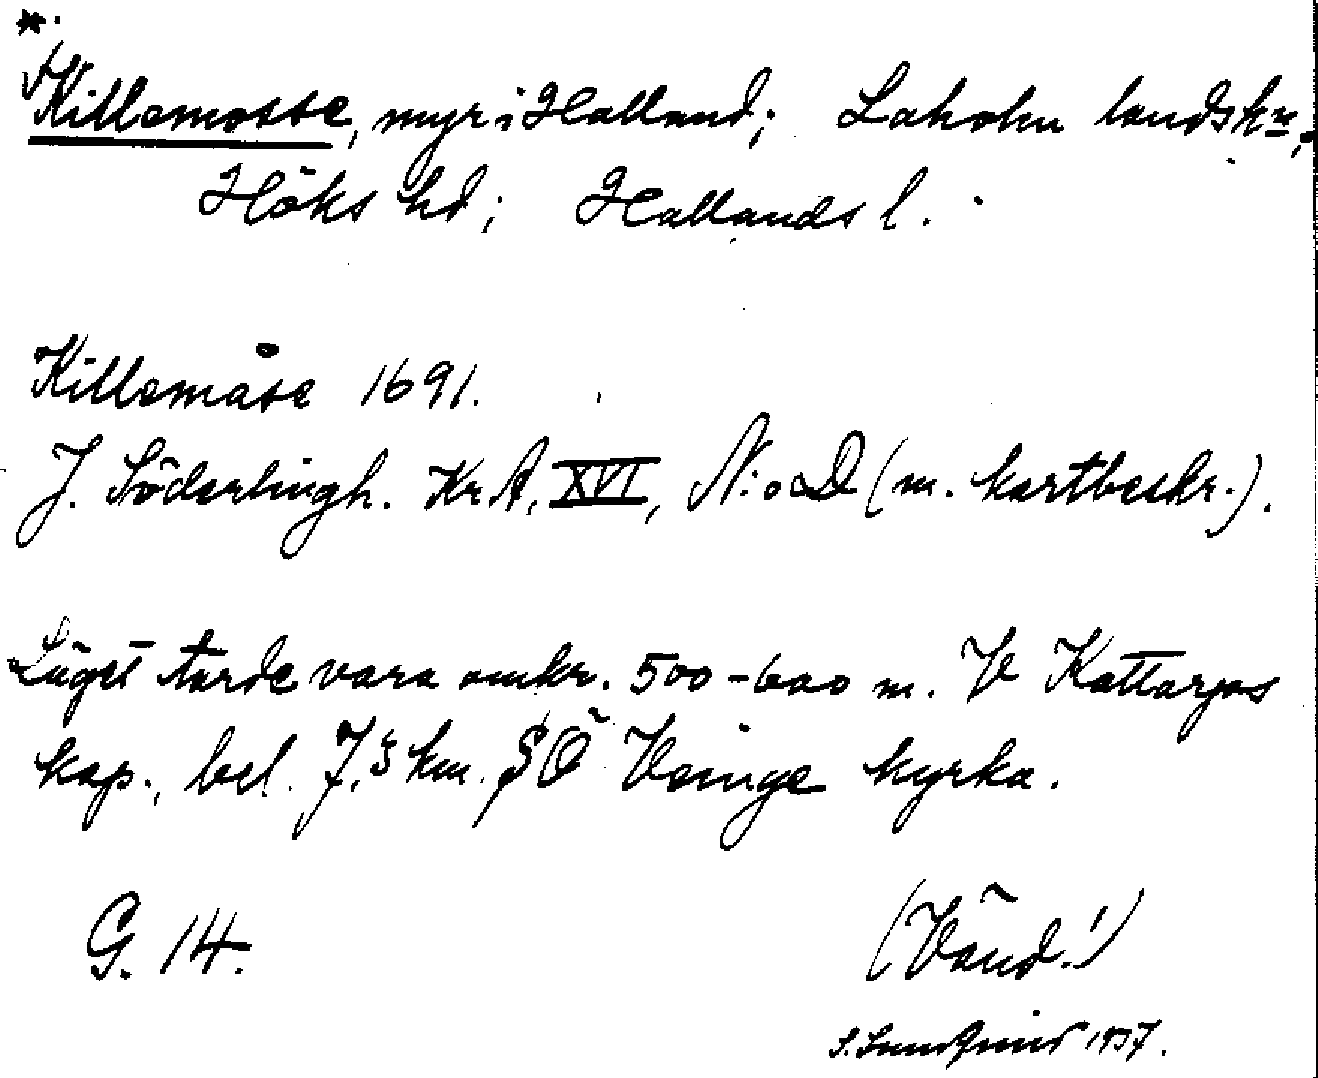 *.
Killemosse, myr i Halland; Laholm landskn;
Höks hd; Hallands l.
Killemåse 1691.
J. Söderlingh. Kr.A. XVI, N:o D (m. kartbeskr.).
Läget torde vara omkr. 500-600 m. V Kattarps
kap., bel. 7,5 km. SÖ Veinge kyrka.
G. 14.
(Vänd!)
1937.